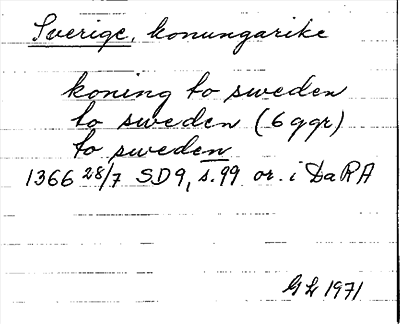 Sverige, konungarike
koning to sweden
to sweden (6 ggr)
to sweden
1366 28/7 SD9, s. 99 or. i DaRA
GL 1971